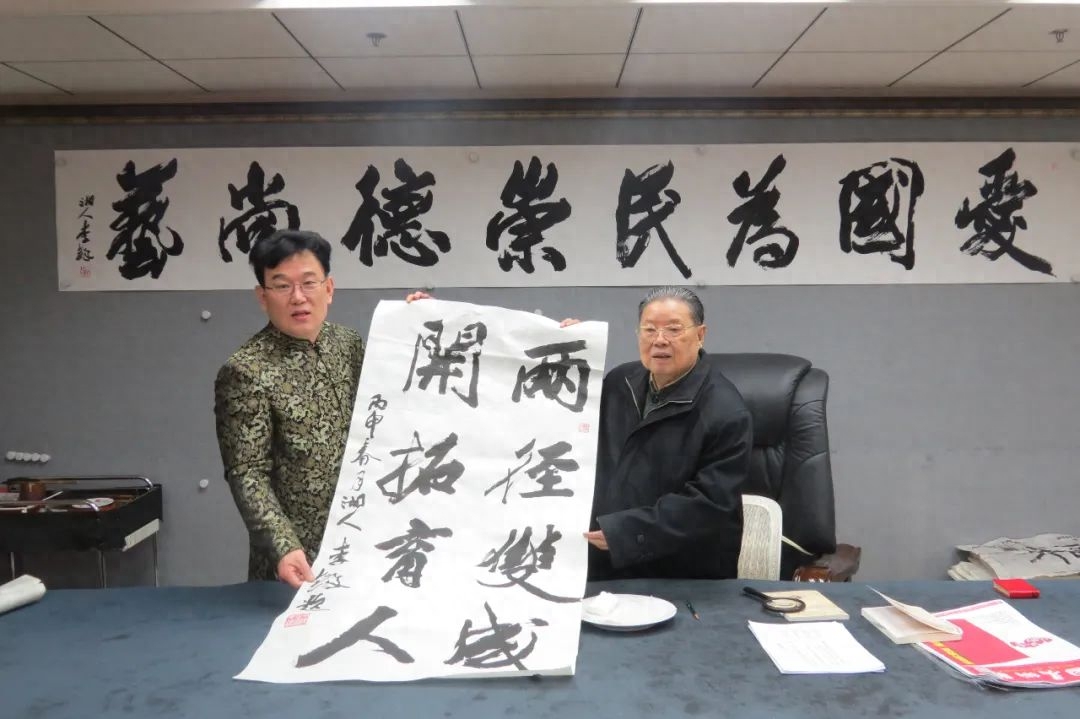 愛國為民崇德尚藝
湘人李鐸
两徑雙成
開拓育人
丙申春月湘人李鐸題